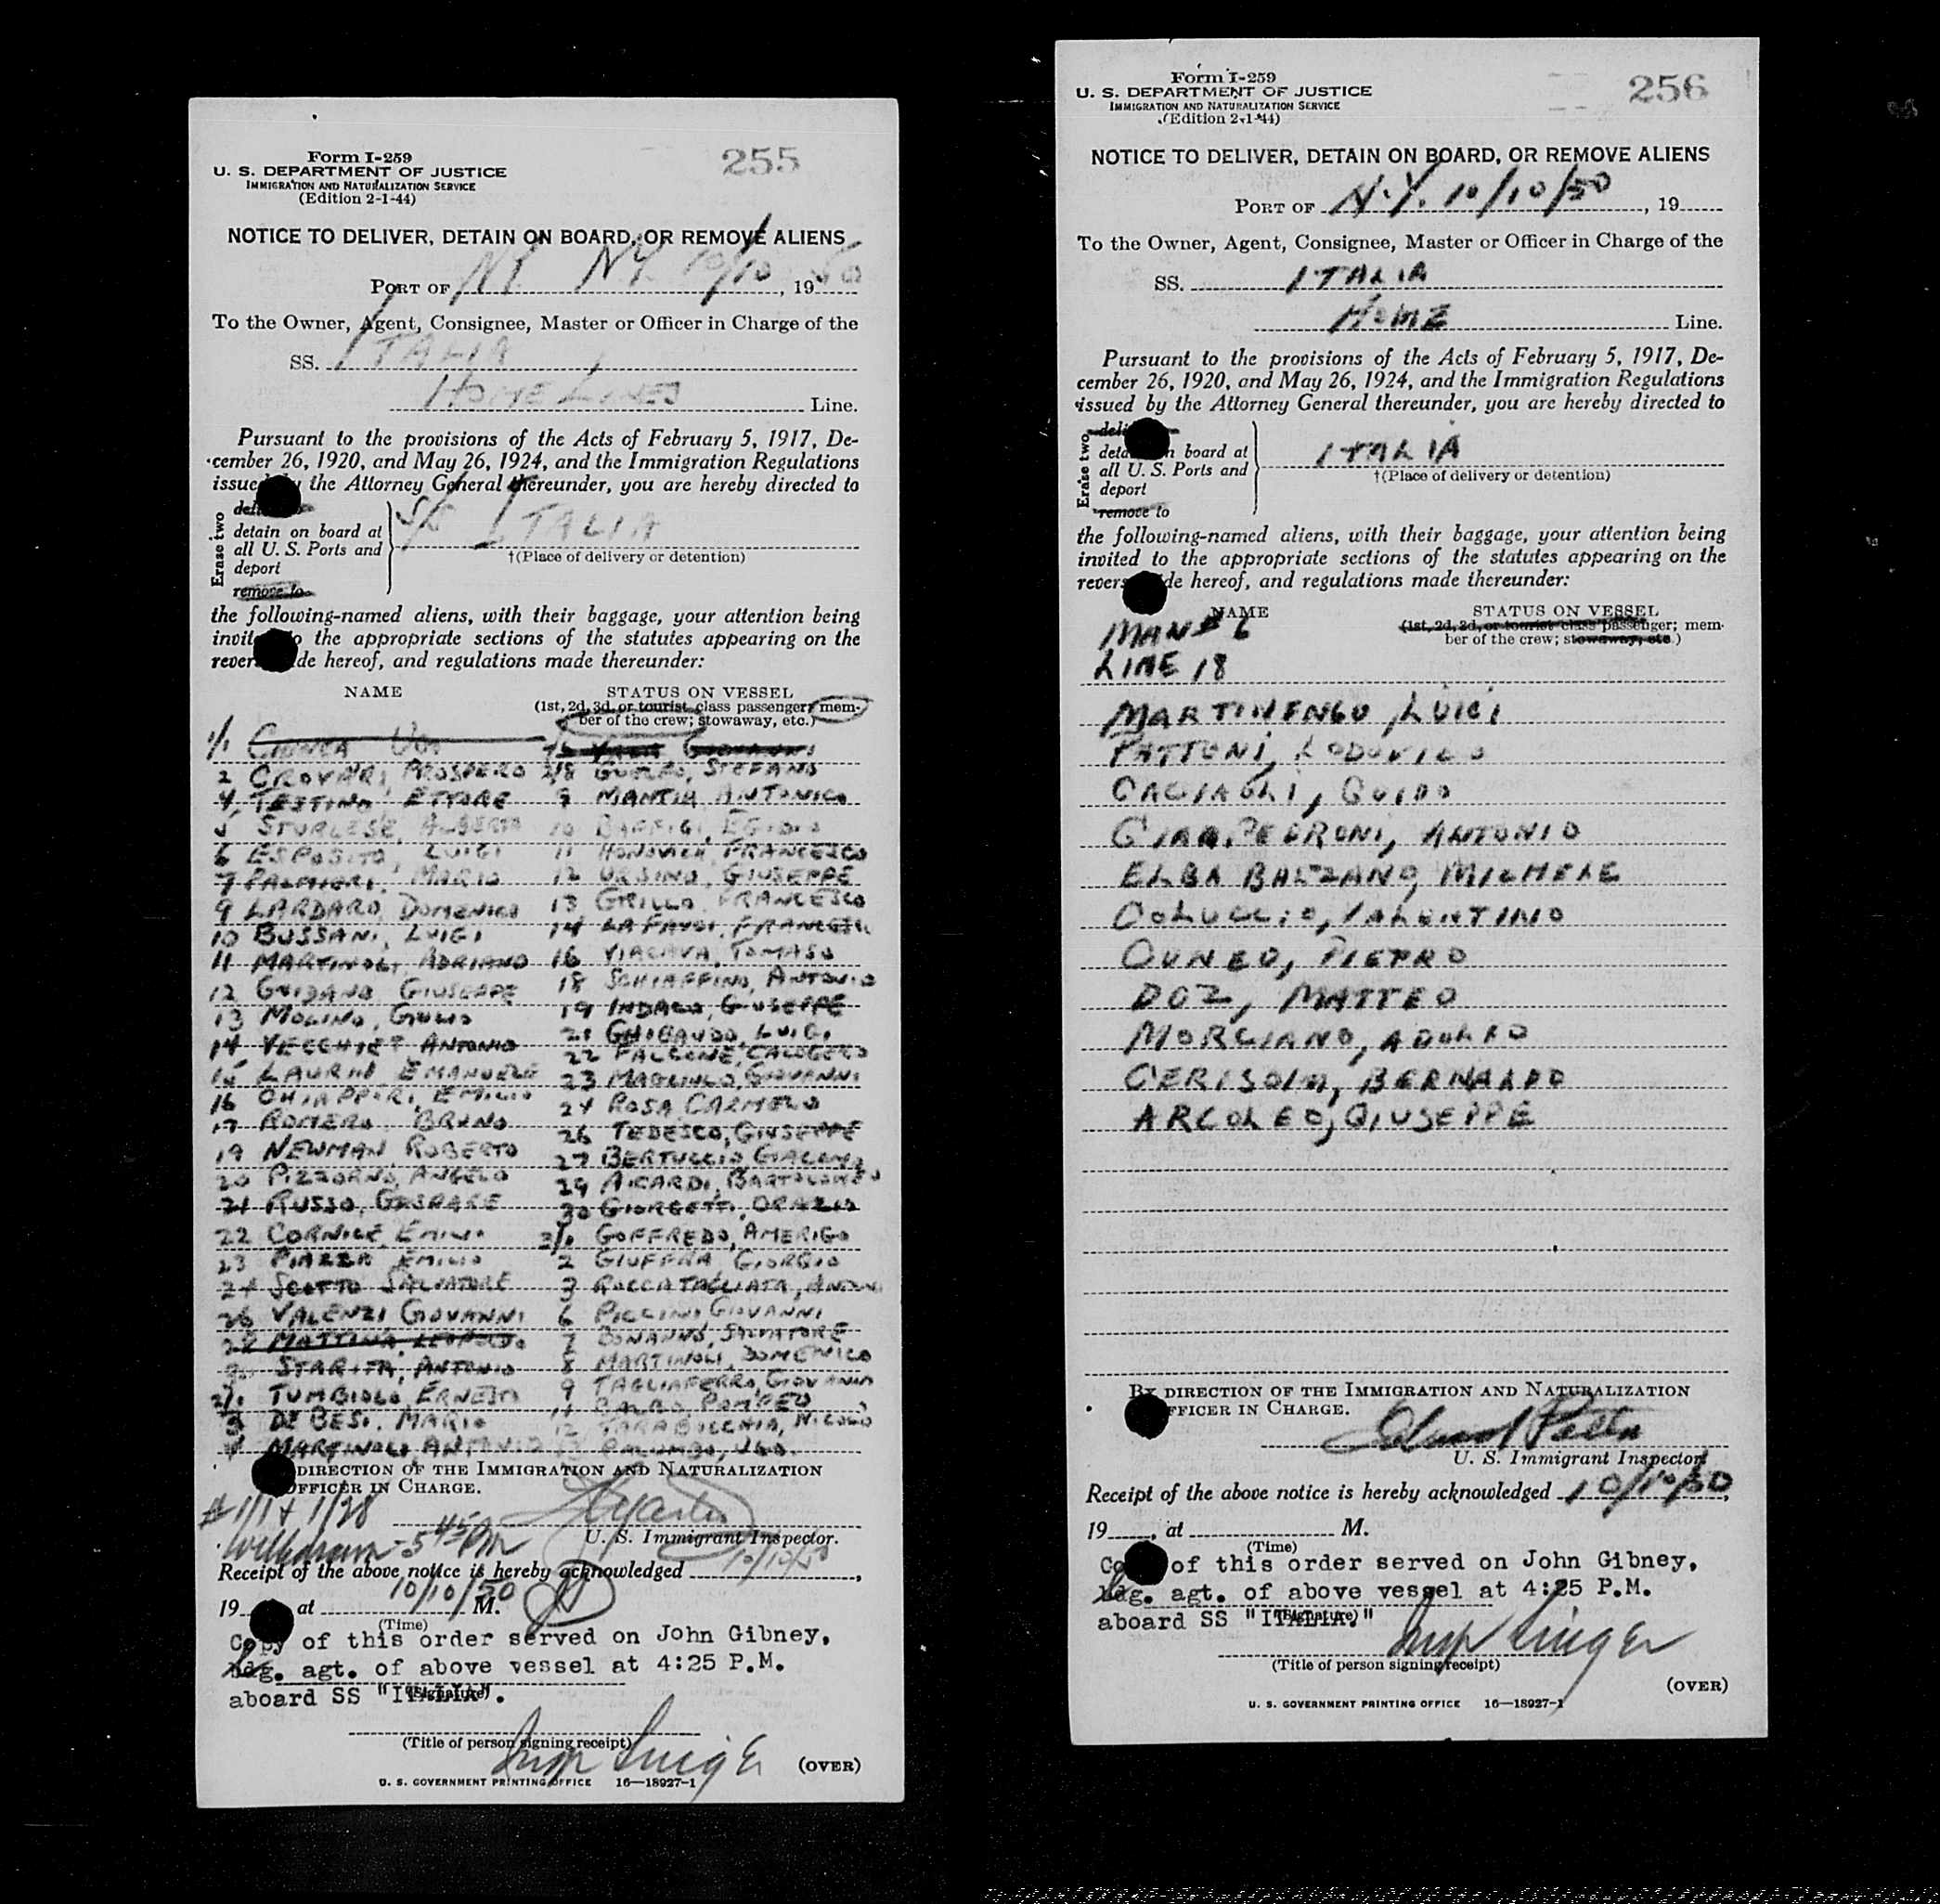 Form I-259
255
U. S. DEPARTMENT OF JUSTICE
IMMIGRATION AND NATURALIZATION SERVICE
(Edition 2-1-44)
NOTICE TO DELIVER, DETAIN ON BOARD, OR REMOVE ALIENS
PORT OF NY. NY. 10/10, 1950
To the Owner, Agent, Consignee, Master or Officer in Charge of the
SS. ITALIA
HOME LINES Line.
Pursuant to the provisions of the Acts of February 5, 1917, De-
cember 26, 1920, and May 26, 1924, and the Immigration Regulations
issued by the Attorney General thereunder, you are hereby directed to
Erase two
detain on board at
all U. S. Ports and
deport
remove to
S/S ITALIA
†(Place of delivery or detention)
the following-named aliens, with their baggage, your attention being
invited to the appropriate sections of the statutes appearing on the
reverse side hereof, and regulations made thereunder:
NAME STATUS ON VESSEL
(1st, 2d, 3d, or tourist class passenger; mem-
ber of the crew; stowaway, etc.)
1/1
2 CROVARI, PROSPERO 2/8 STEFANO
4 TESTINA ETTORE 9 MANTIA ANTONIO
5 STURLESE, ALBERTO 10 EGIDIO
6 ESPOSITO, LUIGI 11 HONOVICH, FRANCESCO
7 PALMIERI, MARIO 12 URSINO, GIUSEPPE
9 LARDARO, DOMENICO 13 GRILLO, FRANCESCO
10 BUSSANI, LUIGI 14
11 MARTINOLI, ADRIANO 16 VIACAVA, TOMASO
12 GUIDANO, GIUSEPPE 18 SCHIAFFINO, ANTONIO
13 MOLINO, GIULIO 19 GIUSEPPE
14 VECCHIET ANTONIO 21 GHIBAUDO, LUIGI
15 EMANUELE 22 FALCONE, CALOGERO
16 EMILIO 23 GIOVANNI
17 ROMERO, BRUNO 24 ROSA CARMELO
19 NEWMAN ROBERTO 26 TEDESCO, GIUSEPPE
20 PIZZORNO, ANGELO 27 BERTUCCIO GIACOMO
21 RUSSO, GASPARE 29 AICARDI, BARTOLOMEO
22 CORNICE, EMILIO 30 GIORGETTI, ORAZIO
23 PIAZZA EMILIO GOFFREDO, AMERIGO
24 SCOTTO SALVATORE 2 GIUFFRA, GIORGIO
26 VALENZI GIOVANNI 3 ROCCATAGLIATA,
28 MATTINA, LEOPOLDO 6 PICCINI GIOVANNI
STARITA, ANTONIO 7 BONANNO, SALVATORE
2/1 TUMBIOLO ERNESTO 8 MARTINOLI, DOMENICO
3 DE BESI, MARIO 9 TAGLIAFERRO, GIOVANNI
4 MARTINOLI ANTONIO 11 BALBO POMPEO
12 TARABOCCHIA, NICOLO
PALOMBO, UGO
DIRECTION OF THE IMMIGRATION AND NATURALIZATION
OFFICER IN CHARGE.
# 1/1 + 1/28
Withdrawn - 5 45 PM
U. S. Immigrant Inspector.
Receipt of the above notice is hereby acknowledged 10/10/50,
19 at 10/10/50 M.
(Time)
Copy of this order served on John Gibney,
bdg. agt. of above vessel at 4:25 P.M.
aboard SS "ITALIA".
(Signature)
Insp Singer
(Title of person signing receipt)
(OVER)
U. S. GOVERNMENT PRINTING OFFICE 16—18927-1
Form I-259
256
U. S. DEPARTMENT OF JUSTICE
IMMIGRATION AND NATURALIZATION SERVICE
(Edition 2-1-44)
NOTICE TO DELIVER, DETAIN ON BOARD, OR REMOVE ALIENS
PORT OF N.Y. 10/10/50, 19
To the Owner, Agent, Consignee, Master or Officer in Charge of the
SS. ITALIA
HOME Line.
Pursuant to the provisions of the Acts of February 5, 1917, De-
cember 26, 1920, and May 26, 1924, and the Immigration Regulations
issued by the Attorney General thereunder, you are hereby directed to
Erase two
detain on board at
all U. S. Ports and
deport
remove to
ITALIA
†(Place of delivery or detention)
the following-named aliens, with their baggage, your attention being
invited to the appropriate sections of the statutes appearing on the
reverse side hereof, and regulations made thereunder:
NAME STATUS ON VESSEL
(1st, 2d, 3d, or tourist class passenger; mem-
ber of the crew; stowaway, etc.)
MAN # 6
LINE 18
MARTINENGO, LUIGI
PATTONI, LODOVICO
CAGIAGLI, GUIDO
GIAMPEDRONI, ANTONIO
ELBA BALZANO, MICHELE
COLUCCIO, VALENTINO
CUNEO, PIETRO
DOZ, MATTEO
MORCIANO, ADOLFO
CERISOLA, BERNARDO
ARCOLEO, GIUSEPPE
BY DIRECTION OF THE IMMIGRATION AND NATURALIZATION
OFFICER IN CHARGE.
U. S. Immigrant Inspector
Receipt of the above notice is hereby acknowledged 10/10/50,
19, at M.
(Time)
Copy of this order served on John Gibney,
bdg. agt. of above vessel at 4:25 P.M.
aboard SS "ITALIA."
(Signature)
Insp Singer
(Title of person signing receipt)
(OVER)
U. S. GOVERNMENT PRINTING OFFICE 16—18927-1